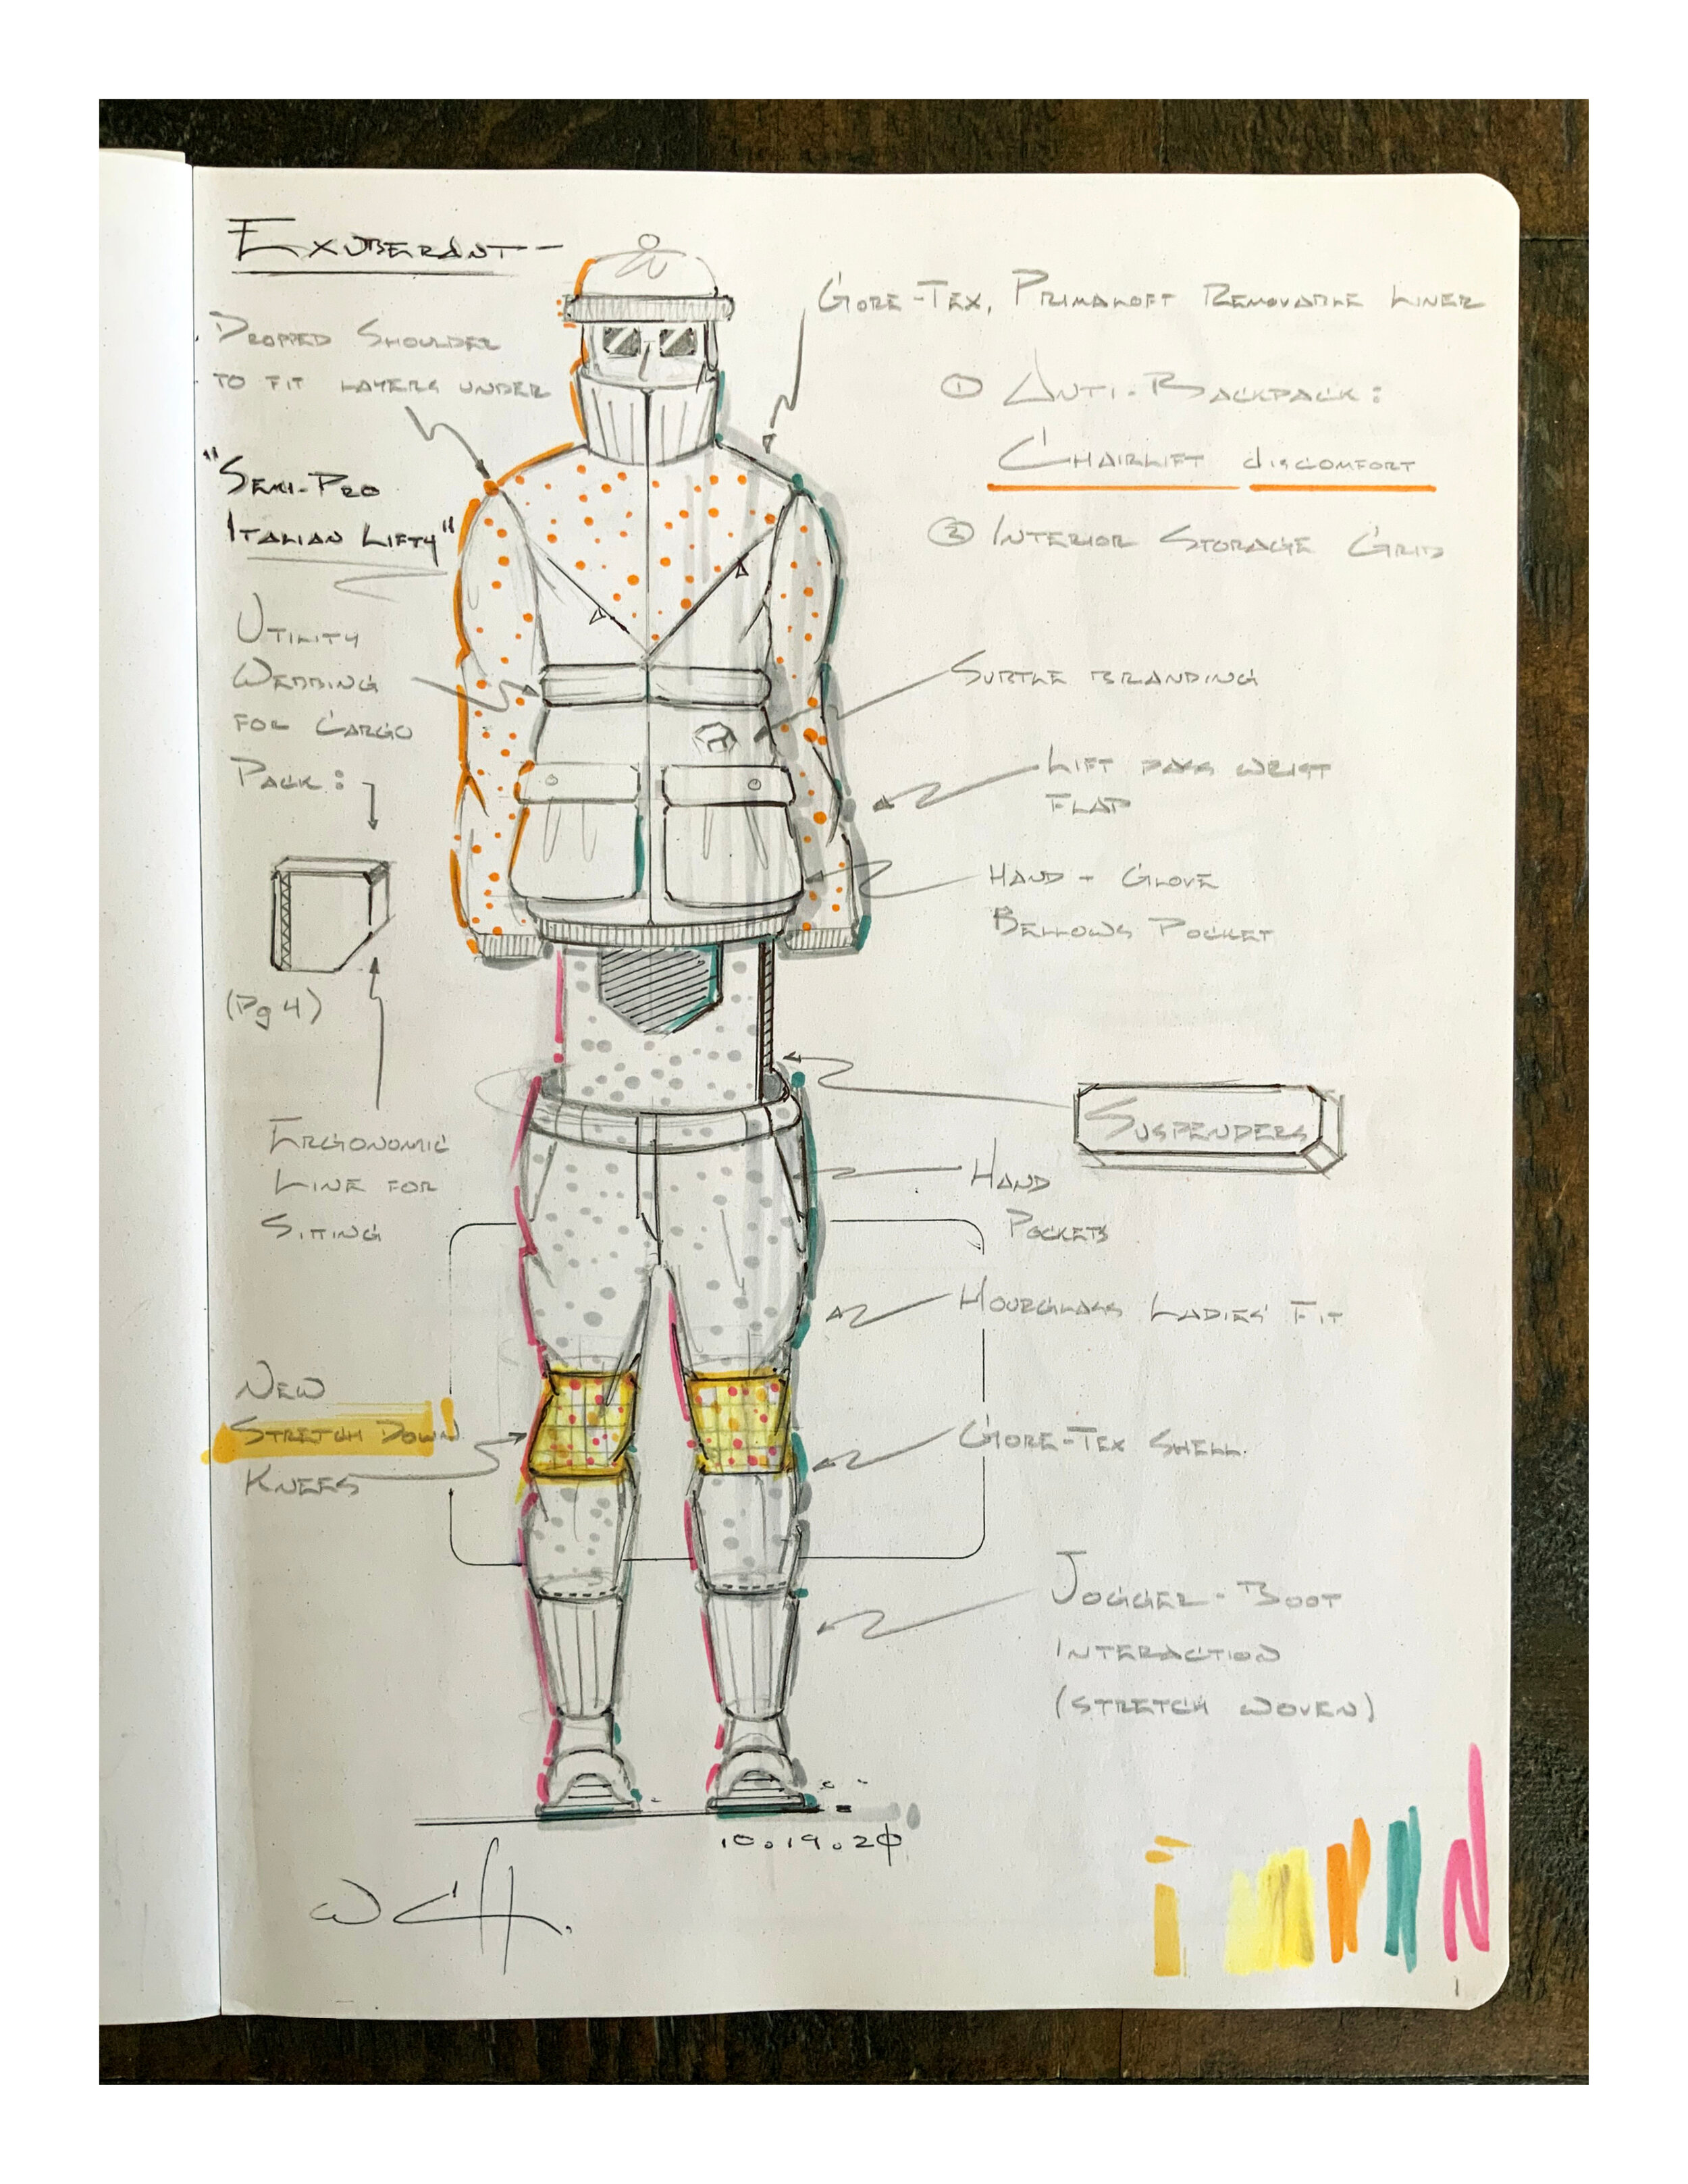 EXUBERANT-
DROPPED SHOULDER
TO FIT LAYERS UNDER
"SEMI-PRO
ITALIAN LIFTY"
UTILITY
WEBBING
FOR CARGO
PACK:
(Pg 4)
ERGONOMIC
LINE FOR
SITTING
NEW
STRETCH DOWN
KNEES
GORE-TEX, PRIMALOFT REMOVABLE LINER
① ANTI-BACKPACK:
CHAIRLIFT DISCOMFORT
② INTERIOR STORAGE GRID
SUBTLE BRANDING
LIFT PASS WRIST
FLAP
HAND + GLOVE
BELLOWS POCKET
SUSPENDERS
HAND
POCKETS
HOURGLASS LADIES' FIT
GORE-TEX SHELL.
JOGGER-BOOT
INTERACTION
(STRETCH WOVEN)
10.19.20
1